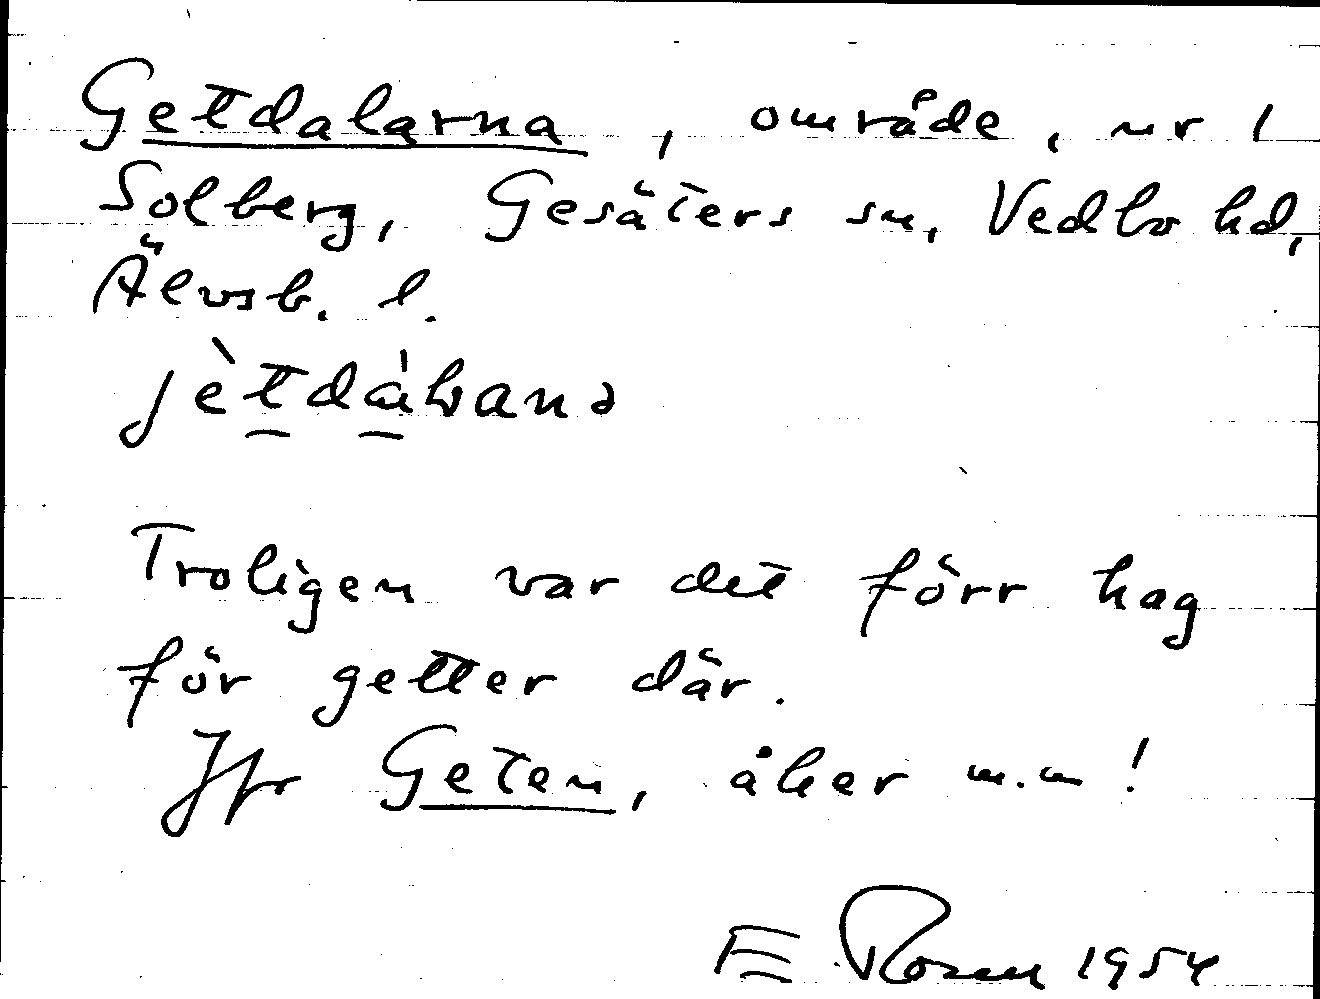 Getdalarna, område, nr 1
Solberg, Gesäters sn, Vedbo hd,
Älvsb. l.
Troligen var det förr hag
för getter där.
Jfr Geten, åker m.m!
E Rosen 1954